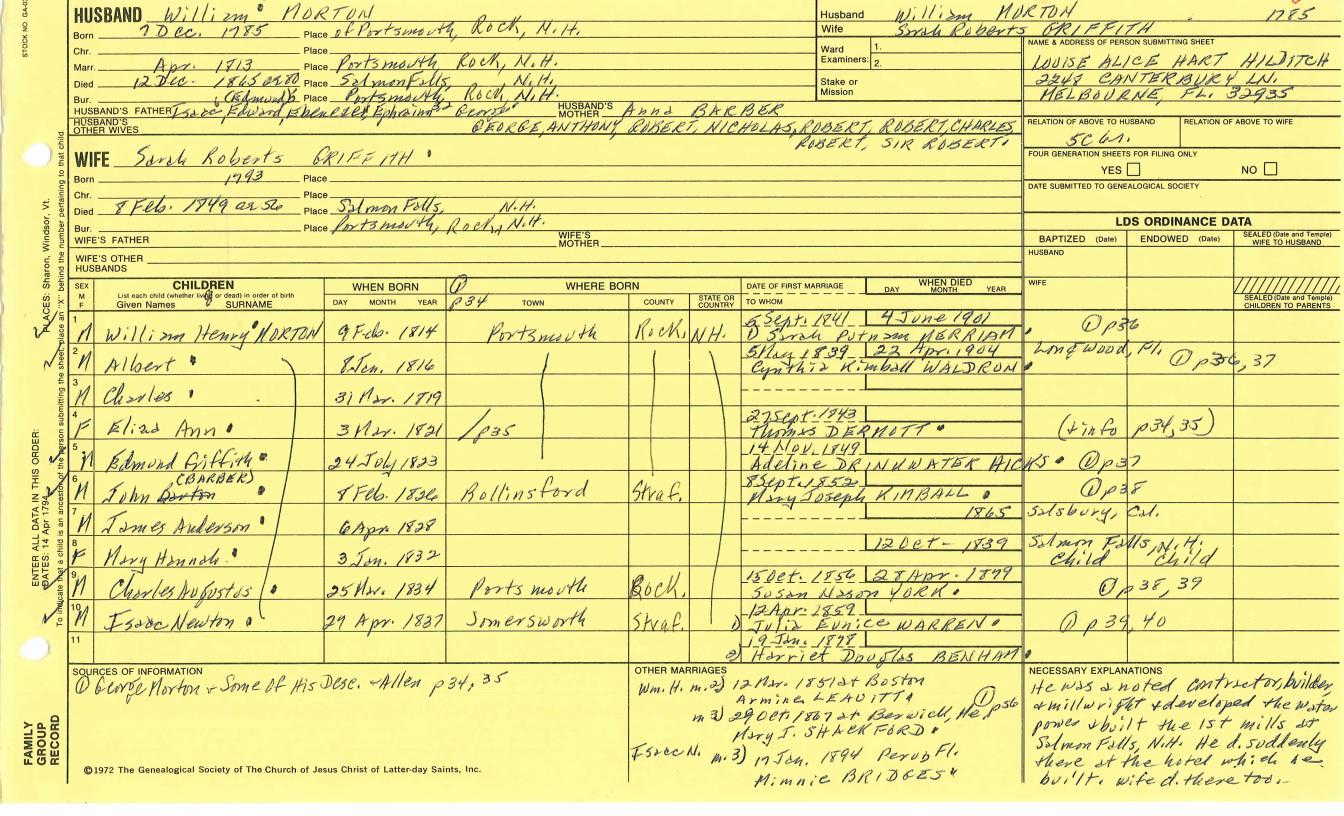 STOCK NO. GA-0
HUSBAND William MORTON
Born 7 Dec. 1785 Place of Portsmouth, Rock, N.H.
Chr. Place
Marr. Apr. 1813 Place Portsmouth Rock, N.H.
Died 12 Dec. 1865 or 80 Place Salmon Falls, N.H.
Bur. Place Portsmouth, Rock, N.H.
(Edmund)
HUSBAND'S FATHER Isaac, Edward, Ebenezer, Ephraim, George HUSBAND'S MOTHER Anna BARBER
HUSBAND'S OTHER WIVES GEORGE, ANTHONY, ROBERT, NICHOLAS, ROBERT, ROBERT, CHARLES
ROBERT, SIR ROBERT.
WIFE Sarah Roberts GRIFFITH
Born 1793 Place
Chr. Place
Died 8 Feb. 1849 or 56 Place Salmon Falls, N.H.
Bur. Place Portsmouth, Rock, N.H.
WIFE'S FATHER WIFE'S MOTHER
WIFE'S OTHER HUSBANDS
Husband William MORTON 1785
Wife Sarah Roberts GRIFFITH
Ward Examiners: 1. 2.
Stake or Mission
NAME & ADDRESS OF PERSON SUBMITTING SHEET
LOUISE ALICE HART HILDITCH
2248 CANTERBURY LN.
MELBOURNE, FL. 32935
RELATION OF ABOVE TO HUSBAND RELATION OF ABOVE TO WIFE
5C 6r.
FOUR GENERATION SHEETS FOR FILING ONLY
YES NO
DATE SUBMITTED TO GENEALOGICAL SOCIETY
LDS ORDINANCE DATA
BAPTIZED (Date) ENDOWED (Date) SEALED (Date and Temple) WIFE TO HUSBAND
HUSBAND
WIFE
SEALED (Date and Temple) CHILDREN TO PARENTS
SEX M F CHILDREN WHEN BORN WHERE BORN DATE OF FIRST MARRIAGE WHEN DIED
List each child (whether living or dead) in order of birth
Given Names SURNAME DAY MONTH YEAR ① p34 TOWN COUNTY STATE OR COUNTRY TO WHOM DAY MONTH YEAR
1 M William Henry MORTON 9 Feb. 1814 Portsmouth Rock, N.H. 5 Sept. 1841 4 June 1901
1) Sarah Putnam MERRIAM ① p36
2 M Albert 8 Jan. 1816 5 May 1839 22 Apr. 1904 Longwood, Fl. ① p36, 37
Cynthia Kimball WALDRON
3 M Charles 31 Mar. 1819
4 F Eliza Ann 3 Mar. 1821 /p35 27 Sept. 1843
Thomas DERMOTT (+info p34,35)
5 M Edmund Griffith 24 July 1823 14 Nov. 1849
Adeline DRINKWATER HICKS ① p37
6 M John (BARBER) Barton 8 Feb. 1826 Rollinsford Straf. 8 Sept. 1852
Mary Joseph KIMBALL ① p38
7 M James Anderson 6 Apr. 1828 1865 Salsbury, Cal.
8 F Mary Hannah 3 Jan. 1832 12 Oct - 1839 Salmon Falls, N.H.
Child Child
9 M Charles Augustus 25 Mar. 1834 Portsmouth Rock. 15 Oct. 1856 28 Apr. 1899
Susan Nason YORK ① p38, 39
10 M Isaac Newton 29 Apr. 1837 Somersworth Straf. 12 Apr. 1859
1) Julia Eunice WARREN ① p 39, 40
11 19 Jan. 1878
2) Harriet Douglas BENHAM
SOURCES OF INFORMATION
① George Morton + Some of His Desc. - Allen p34, 35
OTHER MARRIAGES
Wm. H. m. 2) 12 Mar. 1851 at Boston
Armine LEAVITT
m 3) 29 Oct. 1867 at Berwick, Me. ① p36
Mary J. SHACKFORD
Isaac N. m. 3) 17 Jan. 1894 Fl.
Minnie BRIDGES
NECESSARY EXPLANATIONS
He was a noted contractor, builder,
+ millwright + developed the water
power + built the 1st mills at
Salmon Falls, N.H. He d. suddenly
there at the hotel which he
built. wife d. there too.
©1972 The Genealogical Society of The Church of Jesus Christ of Latter-day Saints, Inc.
FAMILY GROUP RECORD
ENTER ALL DATA IN THIS ORDER:
DATES: 14 Apr 1794
PLACES: Sharon, Windsor, Vt.
To indicate that a child is an ancestor of the person submitting the sheet, place an "X" behind the number pertaining to that child.